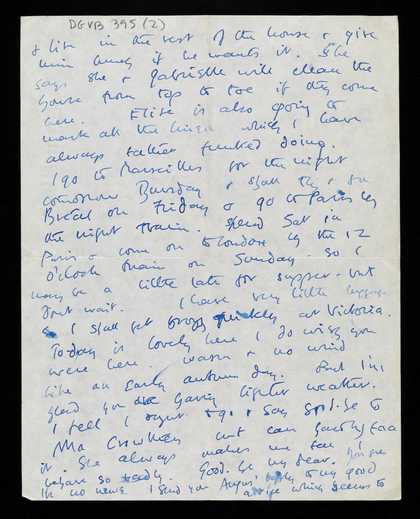 DGVB 395 (2)
& live in the rest of the house & give
him money if he wants it. She
says she & Gabrielle will clean the
house from top to toe if they come
here. Elise is also going to
mark all the linen which I have
always rather funked doing.
I go to Marseilles for the night
tomorrow Thursday & shall try & see
on Friday & go to Paris by
the night train. Spend Sat in
Paris & come on to London by the 12
o'clock train on Sunday. So I
may be a little late for supper - but
don't wait. I have very little luggage
so I shall get through quickly at Victoria.
Today is lovely here I do wish you
were here. warm & no wind
like an early autumn day. But I'm
glad you are having lighter weather.
I feel I ought to go & say good-bye to
Ma but can hardly face
it. She always makes me feel I
behave so badly. Good-bye my dear.
is no news. I send you to my good
which seems to